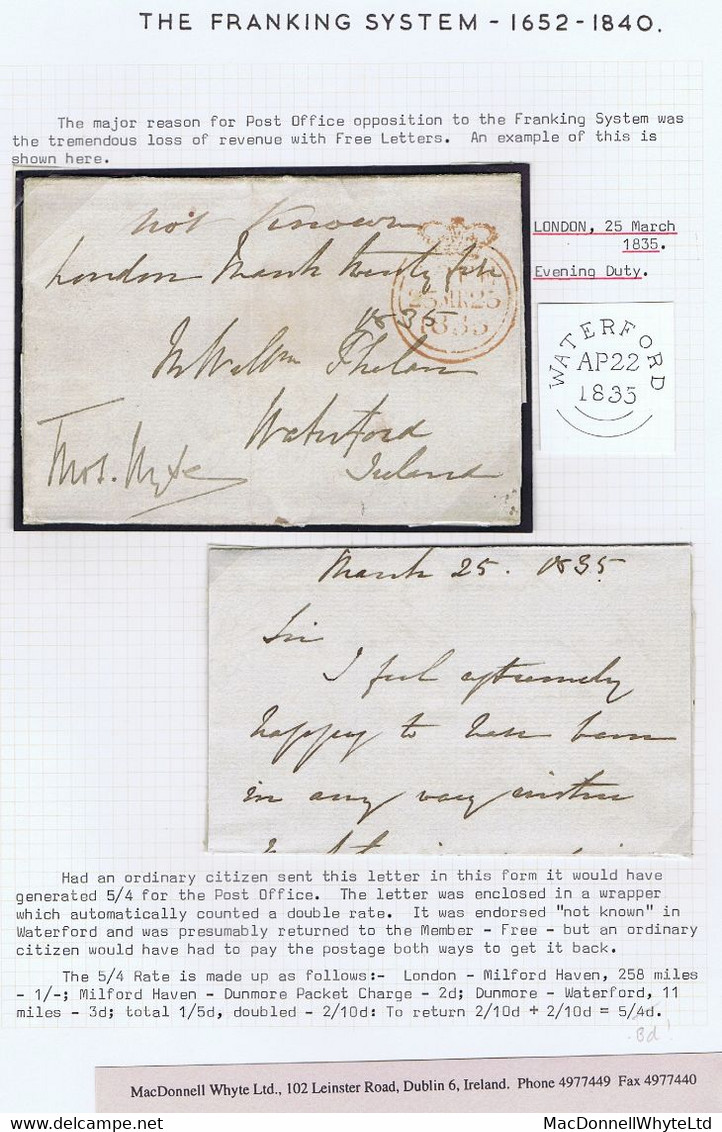 THE FRANKING SYSTEM - 1652-1840.
The major reason for Post Office opposition to the Franking System was
the tremendous loss of revenue with Free Letters. An example of this is
shown here.
not known
London March twenty five
1835
Waterford
Ireland
25MR25
1835
LONDON, 25 March
1835.
Evening Duty.
WATERFORD
AP22
1835
March 25. 1835
Sir
I feel extremely
happy to have been
in any way
Had an ordinary citizen sent this letter in this form it would have
generated 5/4 for the Post Office. The letter was enclosed in a wrapper
which automatically counted a double rate. It was endorsed "not known" in
Waterford and was presumably returned to the Member - Free - but an ordinary
citizen would have had to pay the postage both ways to get it back.
The 5/4 Rate is made up as follows:- London - Milford Haven, 258 miles
- 1/-; Milford Haven - Dunmore Packet Charge - 2d; Dunmore - Waterford, 11
miles - 3d; total 1/5d, doubled - 2/10d: To return 2/10d + 2/10d = 5/4d.
8d!
MacDonnell Whyte Ltd., 102 Leinster Road, Dublin 6, Ireland. Phone 4977449 Fax 4977440
MacDonnellWhyteLtd